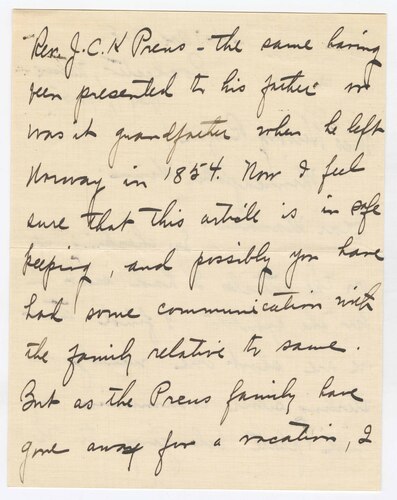 Rev. J. C. K Preus – the same having
been presented to his father or
was it grandfather when he left
Norway in 1854. Now I feel
sure that this article is in safe
keeping, and possibly you have
had some communication with
the family relative to same.
But as the Preus family have
gone away for a vacation, I